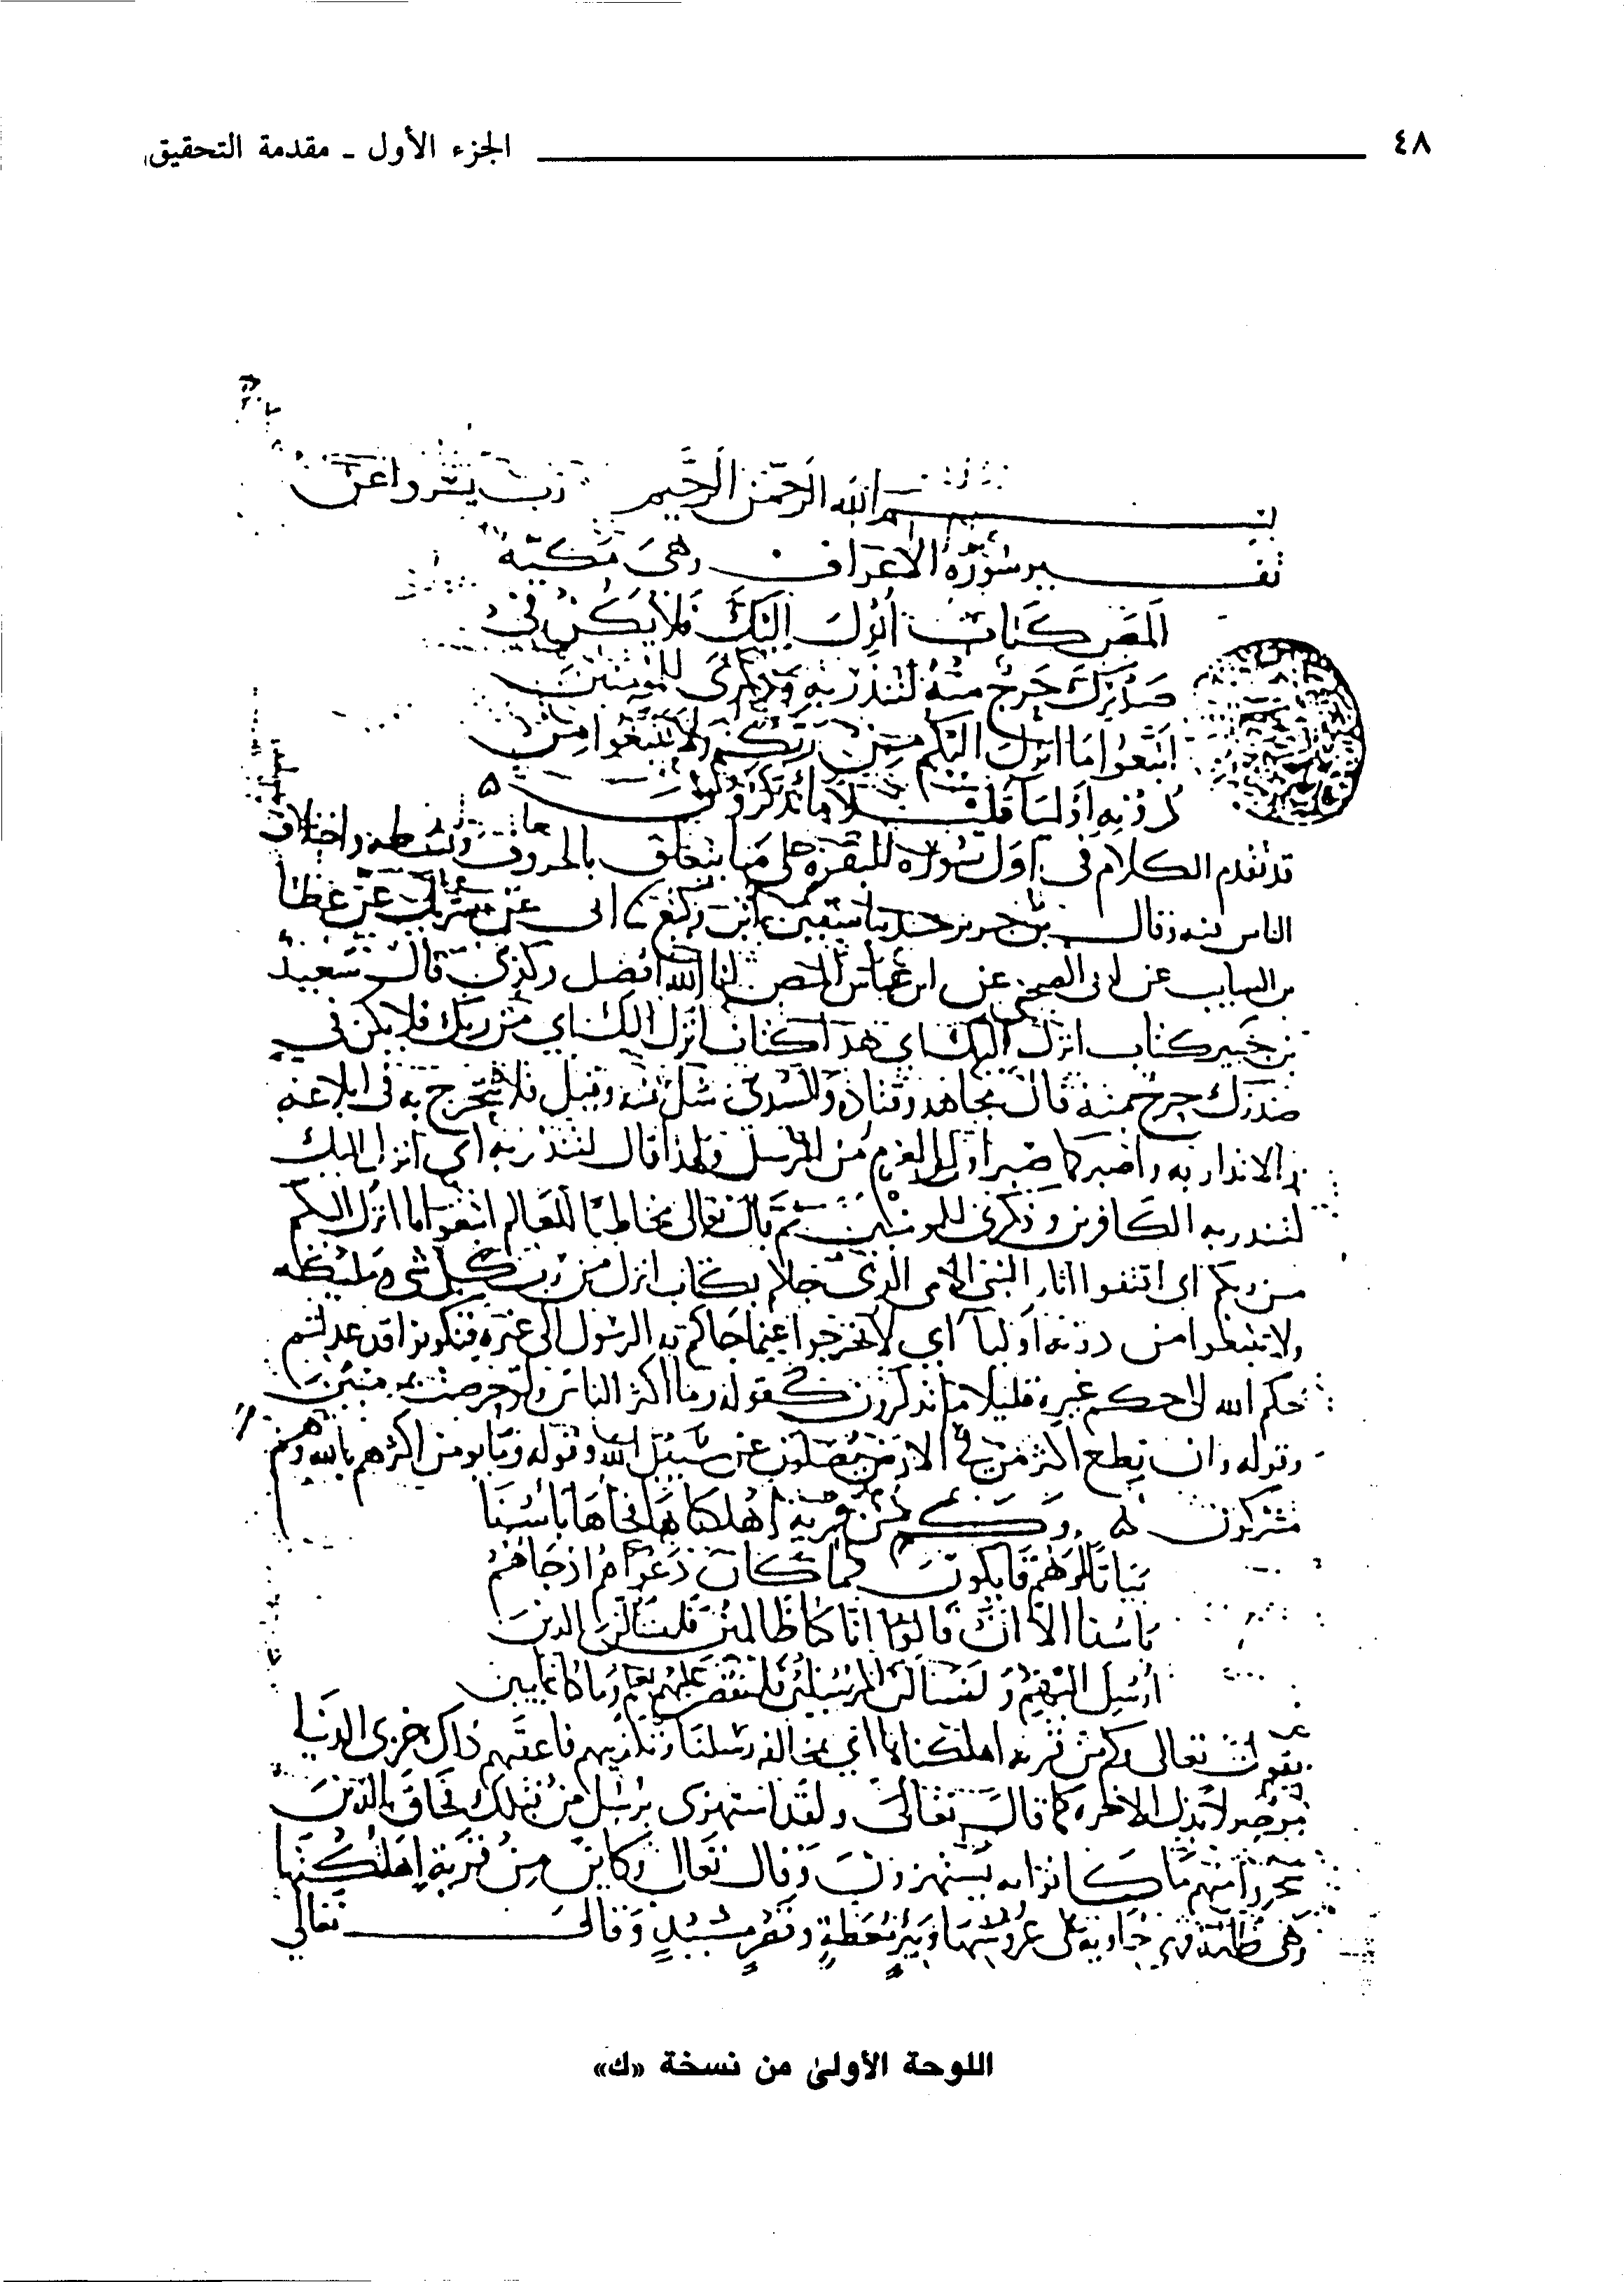 ٤٨ الجزء الأول ـ مقدمة التحقيق
بسم الله الرحمن الرحيم رب يسر واعن
تفسير سورة الاعراف وهي مكية
المص كتاب أنزل إليك فلا يكن في
صدرك حرج منه لتنذر به وذكرى للمومنين
اتبعوا ما انزل اليكم من ربكم ولا تتبعوا من
دونه أوليا قليلا ما تذكرون ه
قد تقدم الكلام في أول سورة البقرة على ما يتعلق بالحروف وبسطه واختلاف
الناس فيه وقال بن جرير حدثنا سفين بن وكيع ابى عن شريك عن عطا
بن السايب عن ابى الضحى عن ابن عباس المص انا الله افضل وكذى قال سعيد
بن جبير كتاب انزل اليك اي هذا كتاب انزل اليك اي من ربك فلا يكن في
صدرك حرج منه قال مجاهد وقتادة والسدي شك منه وقيل فلا تتحرج به في ابلاغه
والانذار به واصبر كما صبر اولوا العزم من الرسل ولهذا قال لتنذر به اي انزل اليك
لتنذر به الكافرين وذكرى للمومنين ثم قال تعالى مخاطبا للعالم اتبعوا ما انزل اليكم
من ربكم اى اقتفوا اثار النبي الامي الذي جاكم بكتاب انزل من رب كل شى ومليكه
ولا تتبعوا من دونه اوليا اي لا تخرجوا عما جاكم به الرسول الى غيره فتكونوا قد عدلتم
حكم الله الى حكم غيره قليلا ما تذكرون كقوله وما اكثر الناس ولو حرصت بمومنين
وقوله وان تطع اكثر من في الارض يضلوك عن سبيل الله وقوله وما يومن اكثرهم بالله الا وهم
مشركون ه وكم من قرية اهلكناها فجاها باسنا
بياتا او هم قايلون فما كان دعواهم اذ جاهم
باسنا الا ان قالوا انا كنا ظالمين فلنسالن الذين
ارسل اليهم ولنسالن المرسلين فلنقصن عليهم بعلم وما كنا غايبين
يقول تعالى وكم من قرية اهلكناها اي بمخالفة رسلنا وتكذيبهم فاعقبهم ذلك خزي الدنيا
موصولا بذل الاخرة كما قال تعالى ولقد استهزى برسل من قبلك فحاق بالذين
سخروا منهم ما كانوا به يستهزون وقال تعالى وكاين من قرية اهلكتها
وهي ظالمة فهي خاوية على عروشها وبير معطلة وقصر مشيد وقال تعالى
اللوحة الأولىٰ من نسخة «ك»